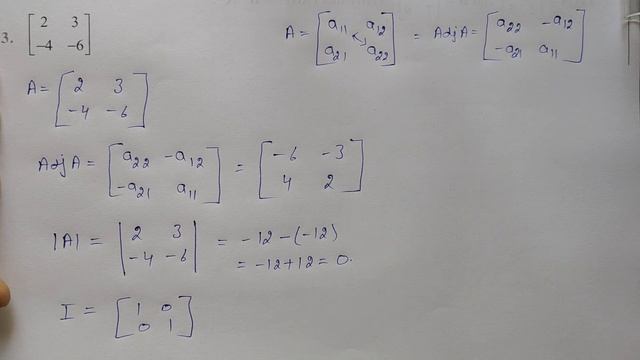 3. [2 3; -4 -6]
A = [a₁₁ a₁₂; a₂₁ a₂₂] = Adj A = [a₂₂ -a₁₂; -a₂₁ a₁₁]
A = [2 3; -4 -6]
Adj A = [a₂₂ -a₁₂; -a₂₁ a₁₁] = [-6 -3; 4 2]
|A| = |2 3; -4 -6| = -12 - (-12)
= -12 + 12 = 0.
I = [1 0; 0 1]